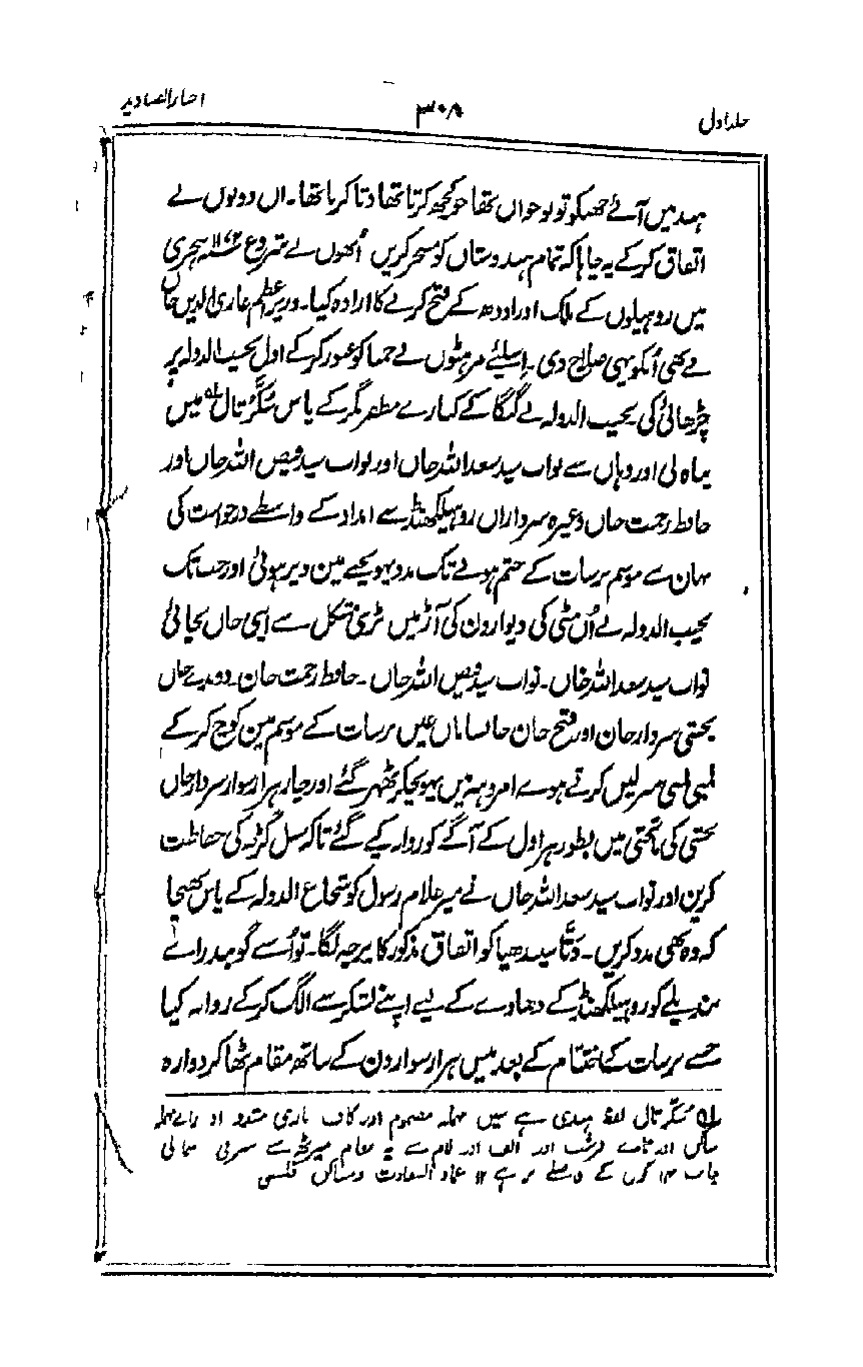 اخبار الصنادید
۳۰۸
جلد اول
ہند میں آئے جھنکو تو نوجوان تھا جو کچھ کرتا تھا دتا کرتا تھا۔ ان دونوں نے
اتفاق کر کے یہ چاہا کہ تمام ہندوستان کو مسخر کریں اُنھوں نے شروع ۱۱۷۳ ہجری
میں روہیلوں کے ملک اور اودھ کے فتح کرنے کا ارادہ کیا۔ وزیر اعظم غازی الدین خان
نے بھی اُنکو یہی صلاح دی۔ اسلیے مرہٹوں نے جمنا کو عبور کر کے اول نجیب الدولہ پر
چڑھائی کی نجیب الدولہ نے گنگا کے کنارے مظفر نگر کے پاس سُکّرتال میں
پناہ لی اور وہاں سے نواب سید سعد اللہ خاں اور نواب سید فیض اللہ خاں اور
حافظ رحمت خاں وغیرہ سرداران روہیلکھنڈ سے امداد کے واسطے درخواست کی
یہان سے موسم برسات کے ختم ہونے تک مدد پہونچنے مین دیر ہوئی اور جب تک
نجیب الدولہ نے اُن مٹی کی دیوارون کی آڑ میں بڑی مشکل سے اپنی جاں بچائی
نواب سید سعد اللہ خاں۔ نواب سید فیض اللہ خاں۔ حافظ رحمت خان۔ دوندیے خاں
بخشی سردار خان اور فتح خان خانساماں عین برسات کے موسم مین کوچ کر کے
لمبی لمبی منزلیں کرتے ہوے امروہہ میں پہونچکر ٹھہر گئے اور چار ہزار سوار سردار خاں
بخشی کی ماتحتی میں بطور ہراول کے آگے کو روانہ کیے گئے تاکہ سبل گڑھ کی حفاظت
کرین اور نواب سید سعد اللہ خاں نے میر غلام رسول کو شجاع الدولہ کے پاس بھیجا
کہ وہ بھی مدد کریں۔ دتّا سیندھیا کو اتفاق مذکور کا پرچہ لگا۔ تو اُسے گوبند رائے
بندیلے کو روہیلکھنڈ کے دھاوے کے لیے اپنے لشکر سے الگ کر کے روانہ کیا
جسے برسات کے اختتام کے بعد میں ہزار سوارون کے ساتھ مقام ٹھاکر دوارہ
لہ سکرتال لفظ ہندی ہے سین مہملہ مضموم اور کاف تازی مشدد او رائے مہملہ
ساکن اور تائے قرشت اور الف اور لام سے یہ مقام میرٹھ سے شرقی شمالی
جانب ۱۳ کوس کے فاصلے پر ہے ۱۲ عماد السعادت وساکن قلمی